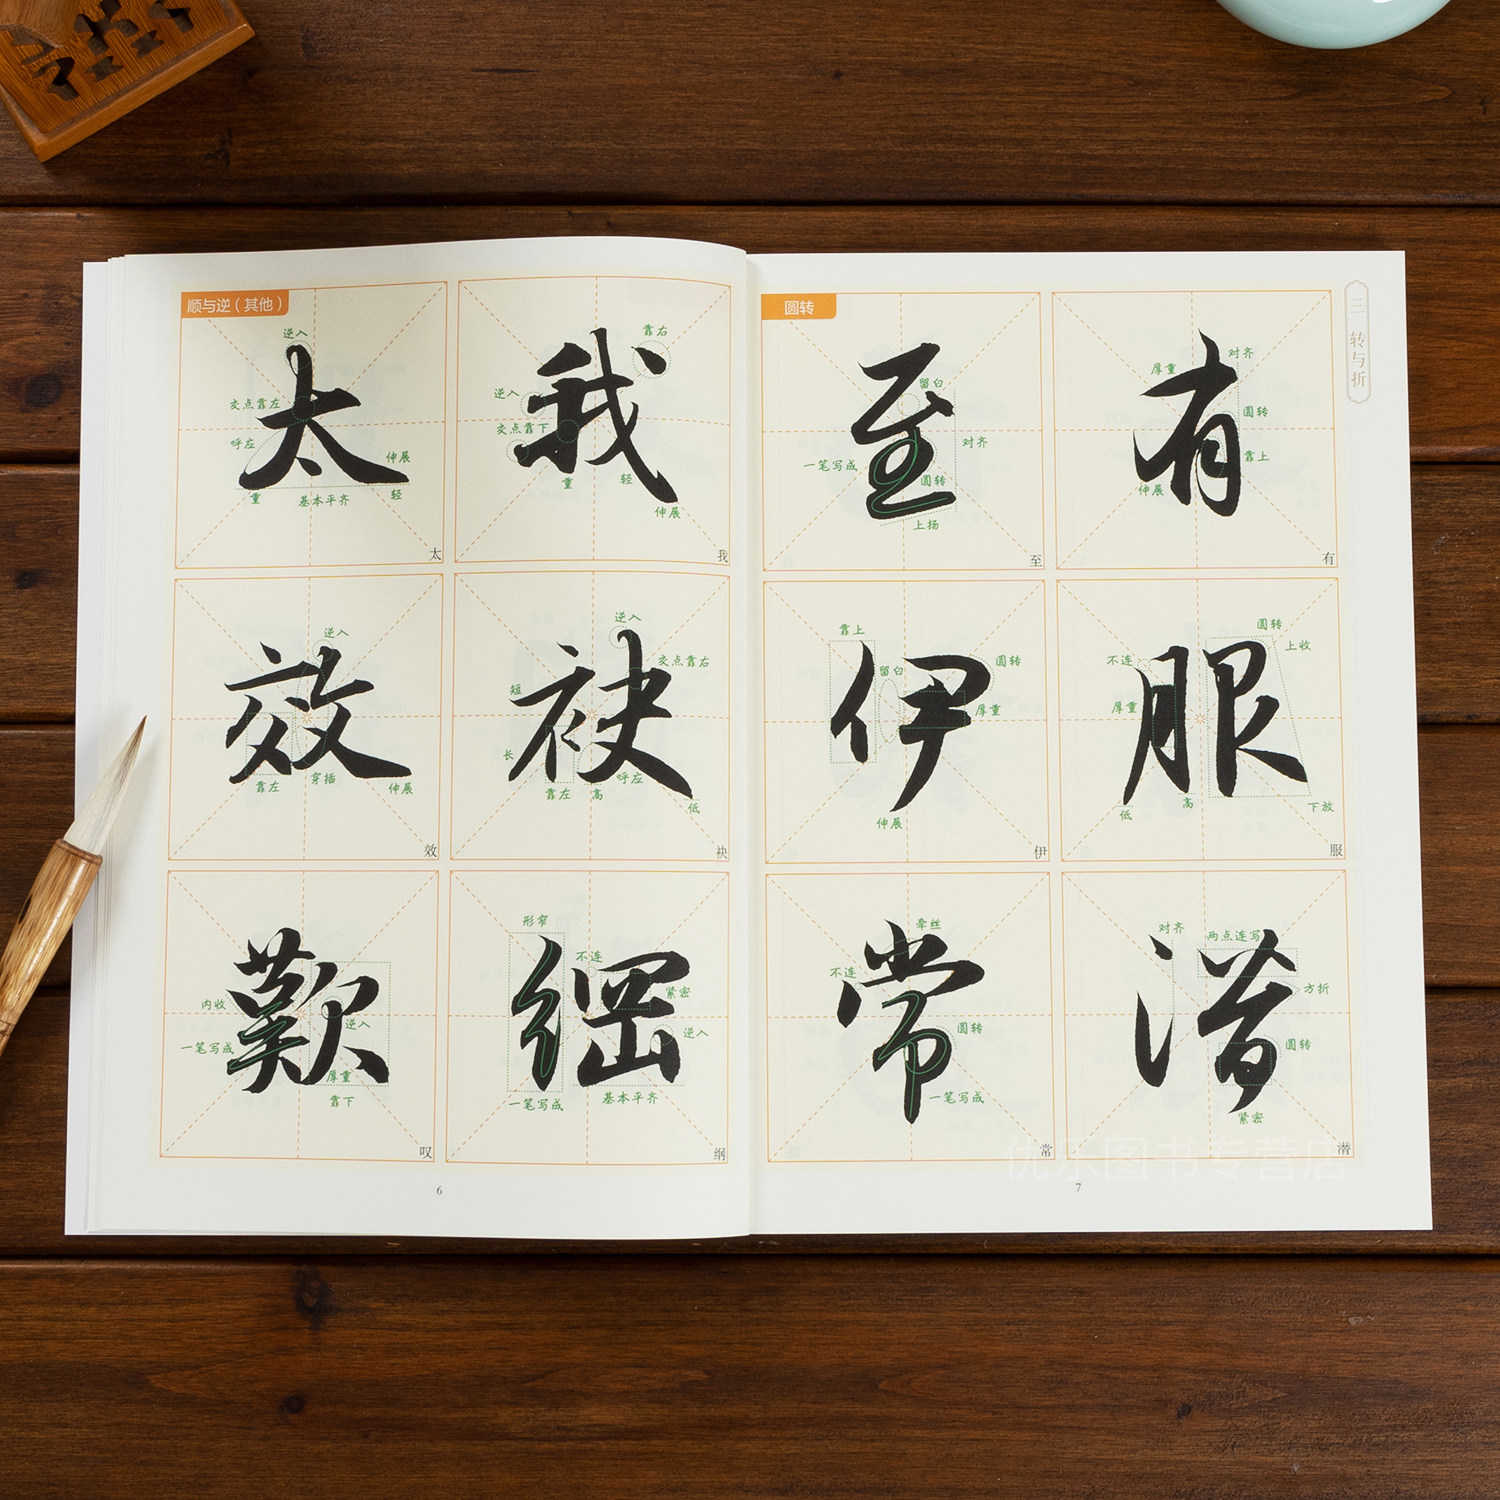 顺与逆（其他）
逆入
交点靠左
呼应
太
伸展
重
基本平齐
轻
太
靠右
逆入
交点靠下
我
重
轻
伸展
我
逆入
效
靠左
穿插
伸展
效
逆入
交点靠右
短
袂
长
呼应
靠左
高
低
袂
内收
歎
逆入
一笔写成
厚重
靠下
叹
形窄
不连
綱
紧密
逆入
一笔写成
基本平齐
纲
6
圆转
留白
至
对齐
一笔写成
圆转
上扬
至
对齐
厚重
有
圆转
靠上
伸展
有
靠上
留白
圆转
伊
厚重
伸展
伊
圆转
上收
不连
服
厚重
高
低
下放
服
牵丝
不连
常
圆转
一笔写成
常
对齐
两点连写
潛
方折
圆转
紧密
潜
7
二 转与折
优乐图书专营店